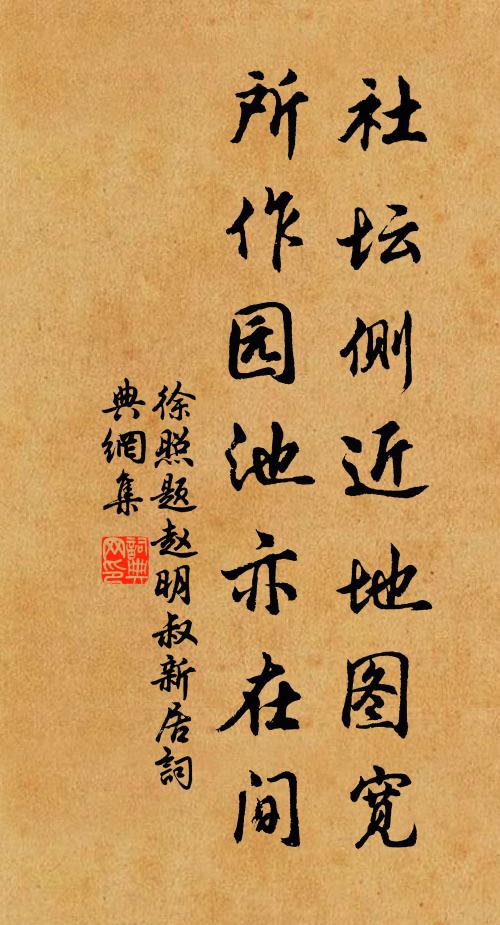 社坛侧近地图宽
所作园池亦在间
徐照题赵明叔新居詞
典網集
詞典
网印